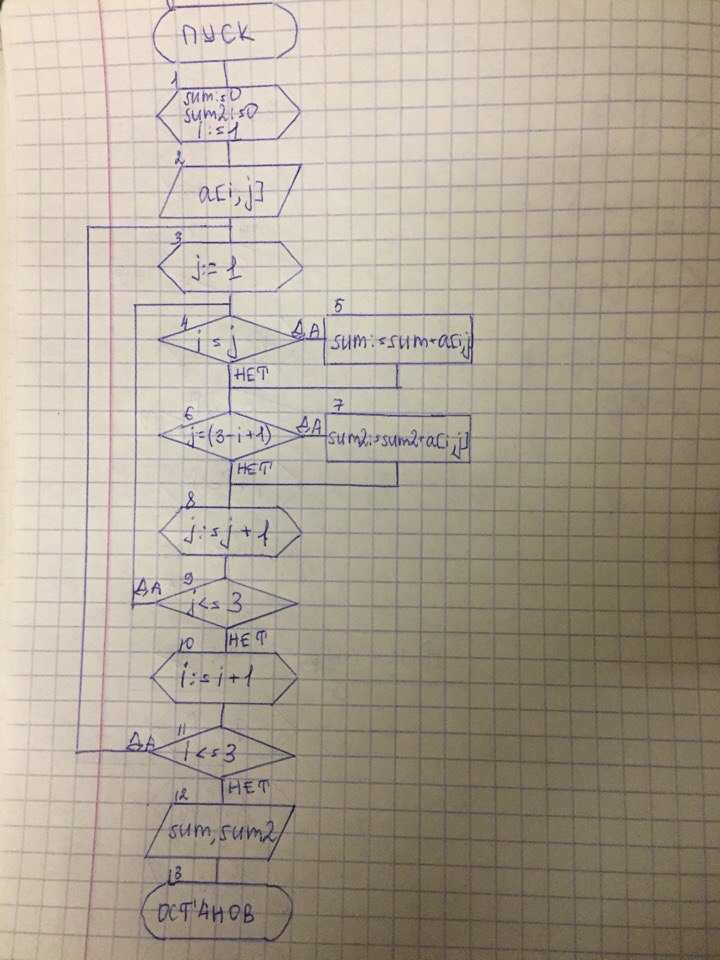 ПУСК
1
sum:=0
sum2:=0
i:=1
2
a[i,j]
3
j:=1
4
i=j
ДА
5
sum:=sum+a[i,j
НЕТ
6
j=(3-i+1)
ДА
7
sum2:=sum2+a[i,j]
НЕТ
8
j:=j+1
9
ДА
j<=3
НЕТ
10
i:=i+1
11
ДА
i<=3
НЕТ
12
sum,sum2
13
ОСТАНОВ